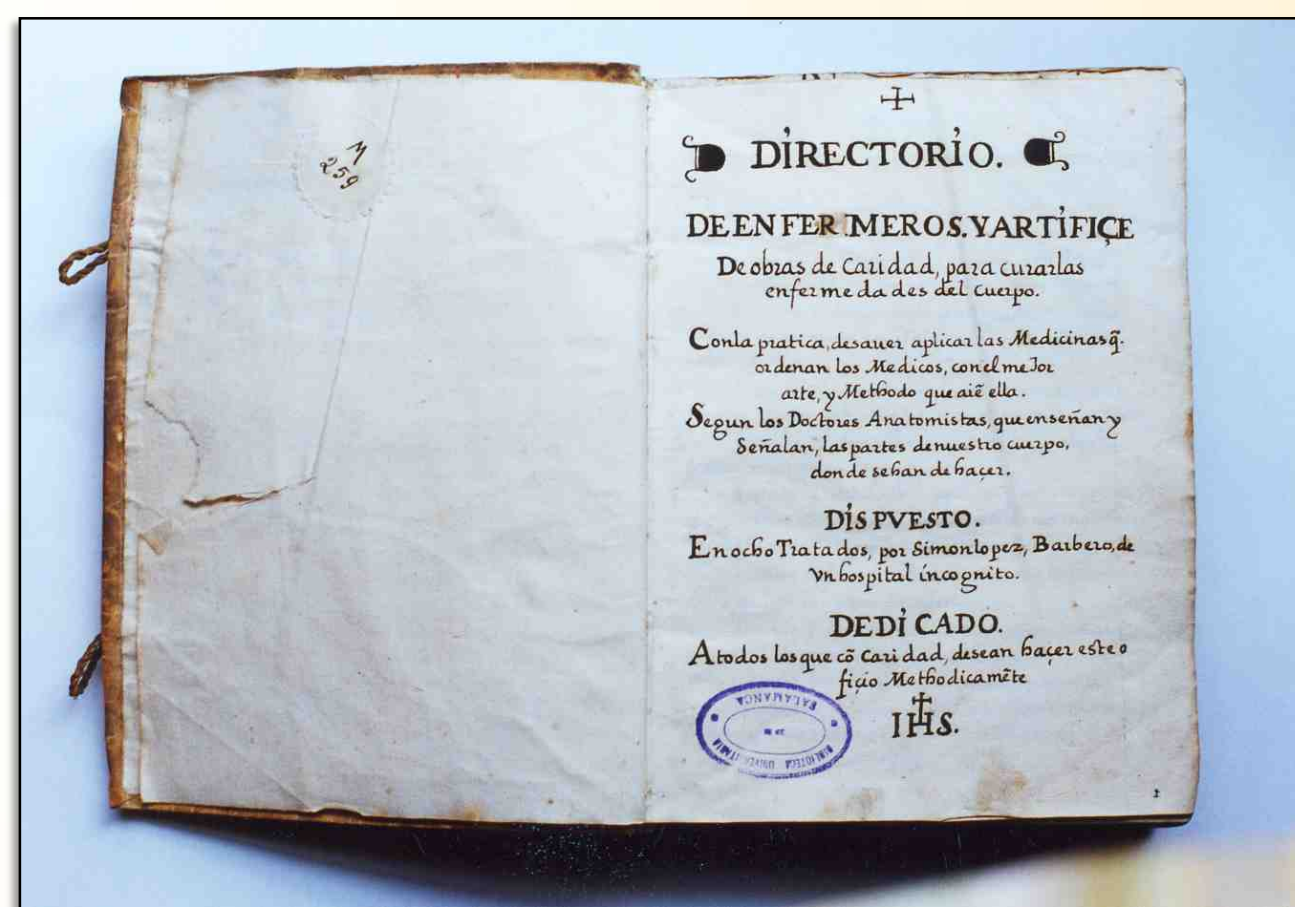 M
259
DIRECTORIO.
DE ENFERMEROS. Y ARTÍFIÇE
De obras de Caridad, para curar las
enfermedades del cuerpo.
Con la pratica, de saver aplicar las Medicinas q̃.
ordenan los Medicos, con el mejor
arte, y Methodo que aiẽ ella.
Segun los Doctores Anatomistas, que enseñan y
Señalan, las partes de nuestro cuerpo,
donde se han de haçer.
DISPVESTO.
En ocho Tratados, por Simon lopez, Barbero, de
Vn hospital incognito.
DEDICADO.
A todos los que cõ Caridad, desean haçer este o
fiçio Methodicamẽte
IHS.
BIBLIOTECA UNIVERSITARIA
SALAMANCA
1